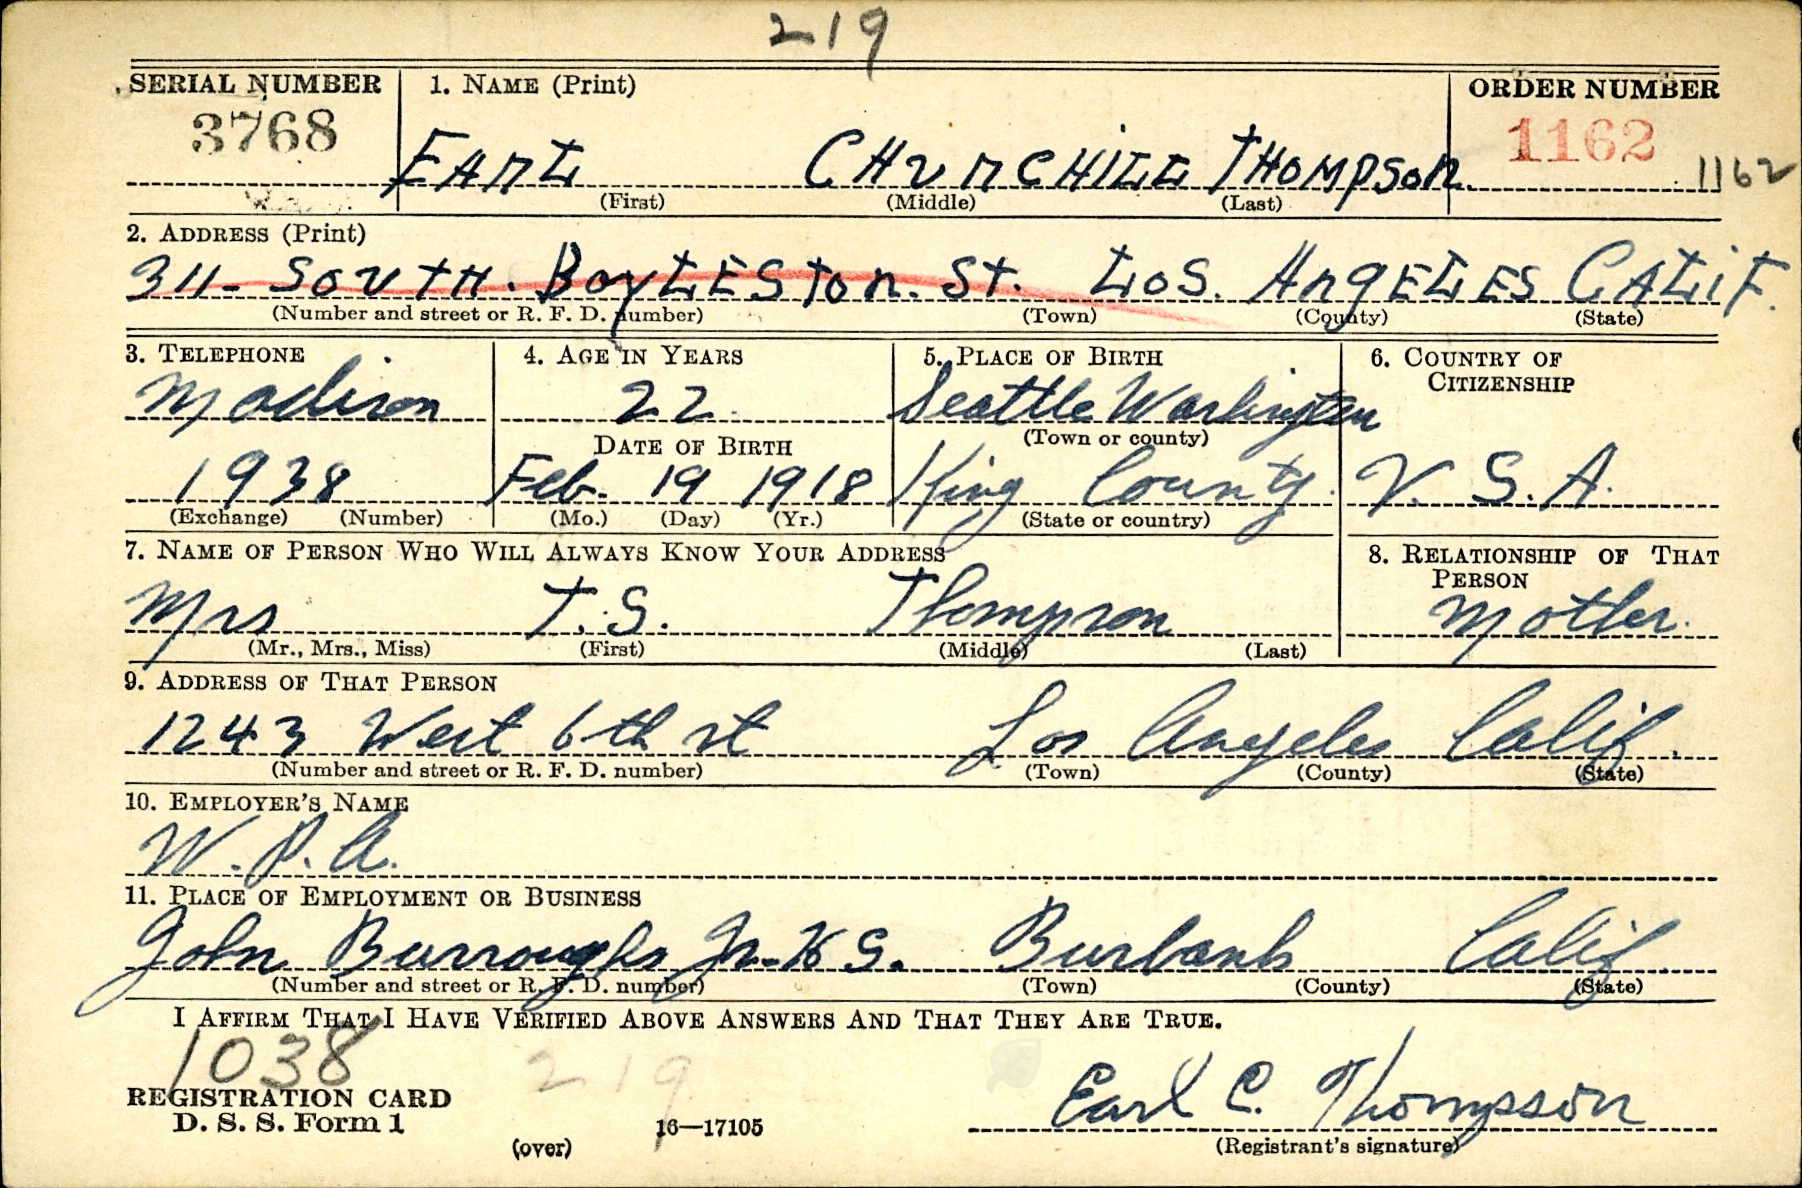 219
SERIAL NUMBER 1. NAME (Print) ORDER NUMBER
3768 EARL CHURCHILL THOMPSON 1162 1162
(First) (Middle) (Last)
2. ADDRESS (Print)
311- SOUTH. BOYLESTON. ST. LOS. ANGELES CALIF.
(Number and street or R. F. D. number) (Town) (County) (State)
3. TELEPHONE 4. AGE IN YEARS 5. PLACE OF BIRTH 6. COUNTRY OF CITIZENSHIP
Madison 22. Seattle Washington
DATE OF BIRTH (Town or county)
1938 Feb. 19 1918 King County. U. S. A.
(Exchange) (Number) (Mo.) (Day) (Yr.) (State or country)
7. NAME OF PERSON WHO WILL ALWAYS KNOW YOUR ADDRESS 8. RELATIONSHIP OF THAT PERSON
Mrs T. S. Thompson Mother.
(Mr., Mrs., Miss) (First) (Middle) (Last)
9. ADDRESS OF THAT PERSON
1243 West 6th st Los Angeles Calif.
(Number and street or R. F. D. number) (Town) (County) (State)
10. EMPLOYER'S NAME
W. P. A.
11. PLACE OF EMPLOYMENT OR BUSINESS
John Burroughs Jr. H S. Burbank Calif
(Number and street or R. F. D. number) (Town) (County) (State)
I AFFIRM THAT I HAVE VERIFIED ABOVE ANSWERS AND THAT THEY ARE TRUE.
1038 219
REGISTRATION CARD Earl C. Thompson
D. S. S. Form 1 (over) 16—17105 (Registrant's signature)